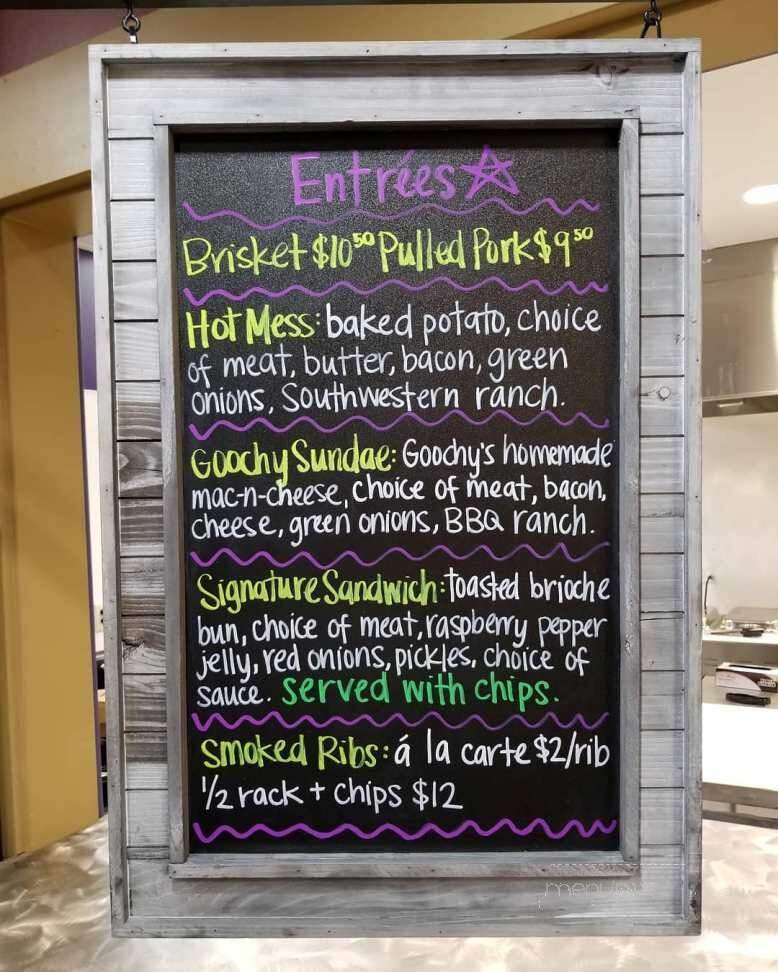 Entrées
Brisket $10⁵⁰ Pulled Pork $9⁵⁰
Hot Mess: baked potato, choice
of meat, butter, bacon, green
onions, Southwestern ranch.
Goochy Sundae: Goochy's homemade
mac-n-cheese, choice of meat, bacon,
cheese, green onions, BBQ ranch.
Signature Sandwich: toasted brioche
bun, choice of meat, raspberry pepper
jelly, red onions, pickles, choice of
sauce. served with chips.
Smoked Ribs: á la carte $2/rib
1/2 rack + chips $12